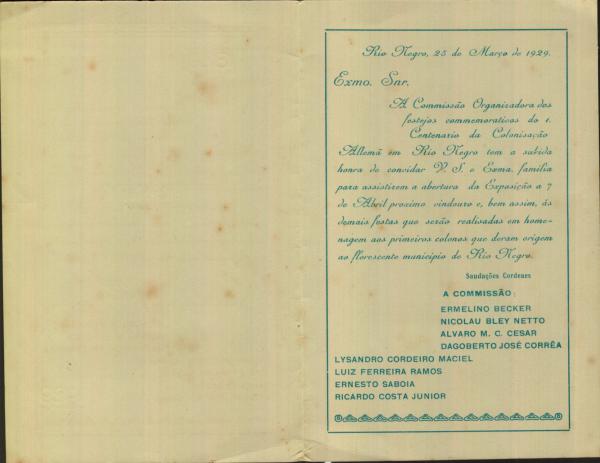 Rio Negro, 25 de Março de 1929.
Exmo. Snr.
A Commissão Organizadora dos
festejos commemorativos do 1.
Centenario da Colonisação
Allemã em Rio Negro tem a subida
honra de convidar V. S. e Exma. familia
para assistirem a abertura da Exposição a 7
de Abril proximo vindouro e, bem assim, ás
demais festas que serão realisadas em home-
nagem aos primeiros colonos que deram origem
ao florescente municipio de Rio Negro.
Saudações Cordeaes
A COMMISSÃO:
ERMELINO BECKER
NICOLAU BLEY NETTO
ALVARO M. C. CESAR
DAGOBERTO JOSÉ CORRÊA
LYSANDRO CORDEIRO MACIEL
LUIZ FERREIRA RAMOS
ERNESTO SABOIA
RICARDO COSTA JUNIOR